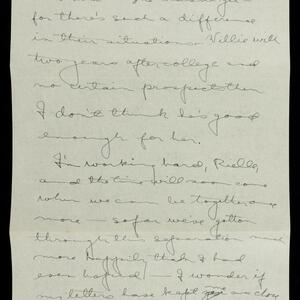 for there's such a difference
in their situations. Willie with
two years after college and
no certain prospect then
I don't think he's good
enough for her.
I'm working hard, Rielle,
and the time will soon come
when we can be together
more – so far we've gotten
through this separation
more happily than I had
even hoped. I wonder if
my letters have kept as close